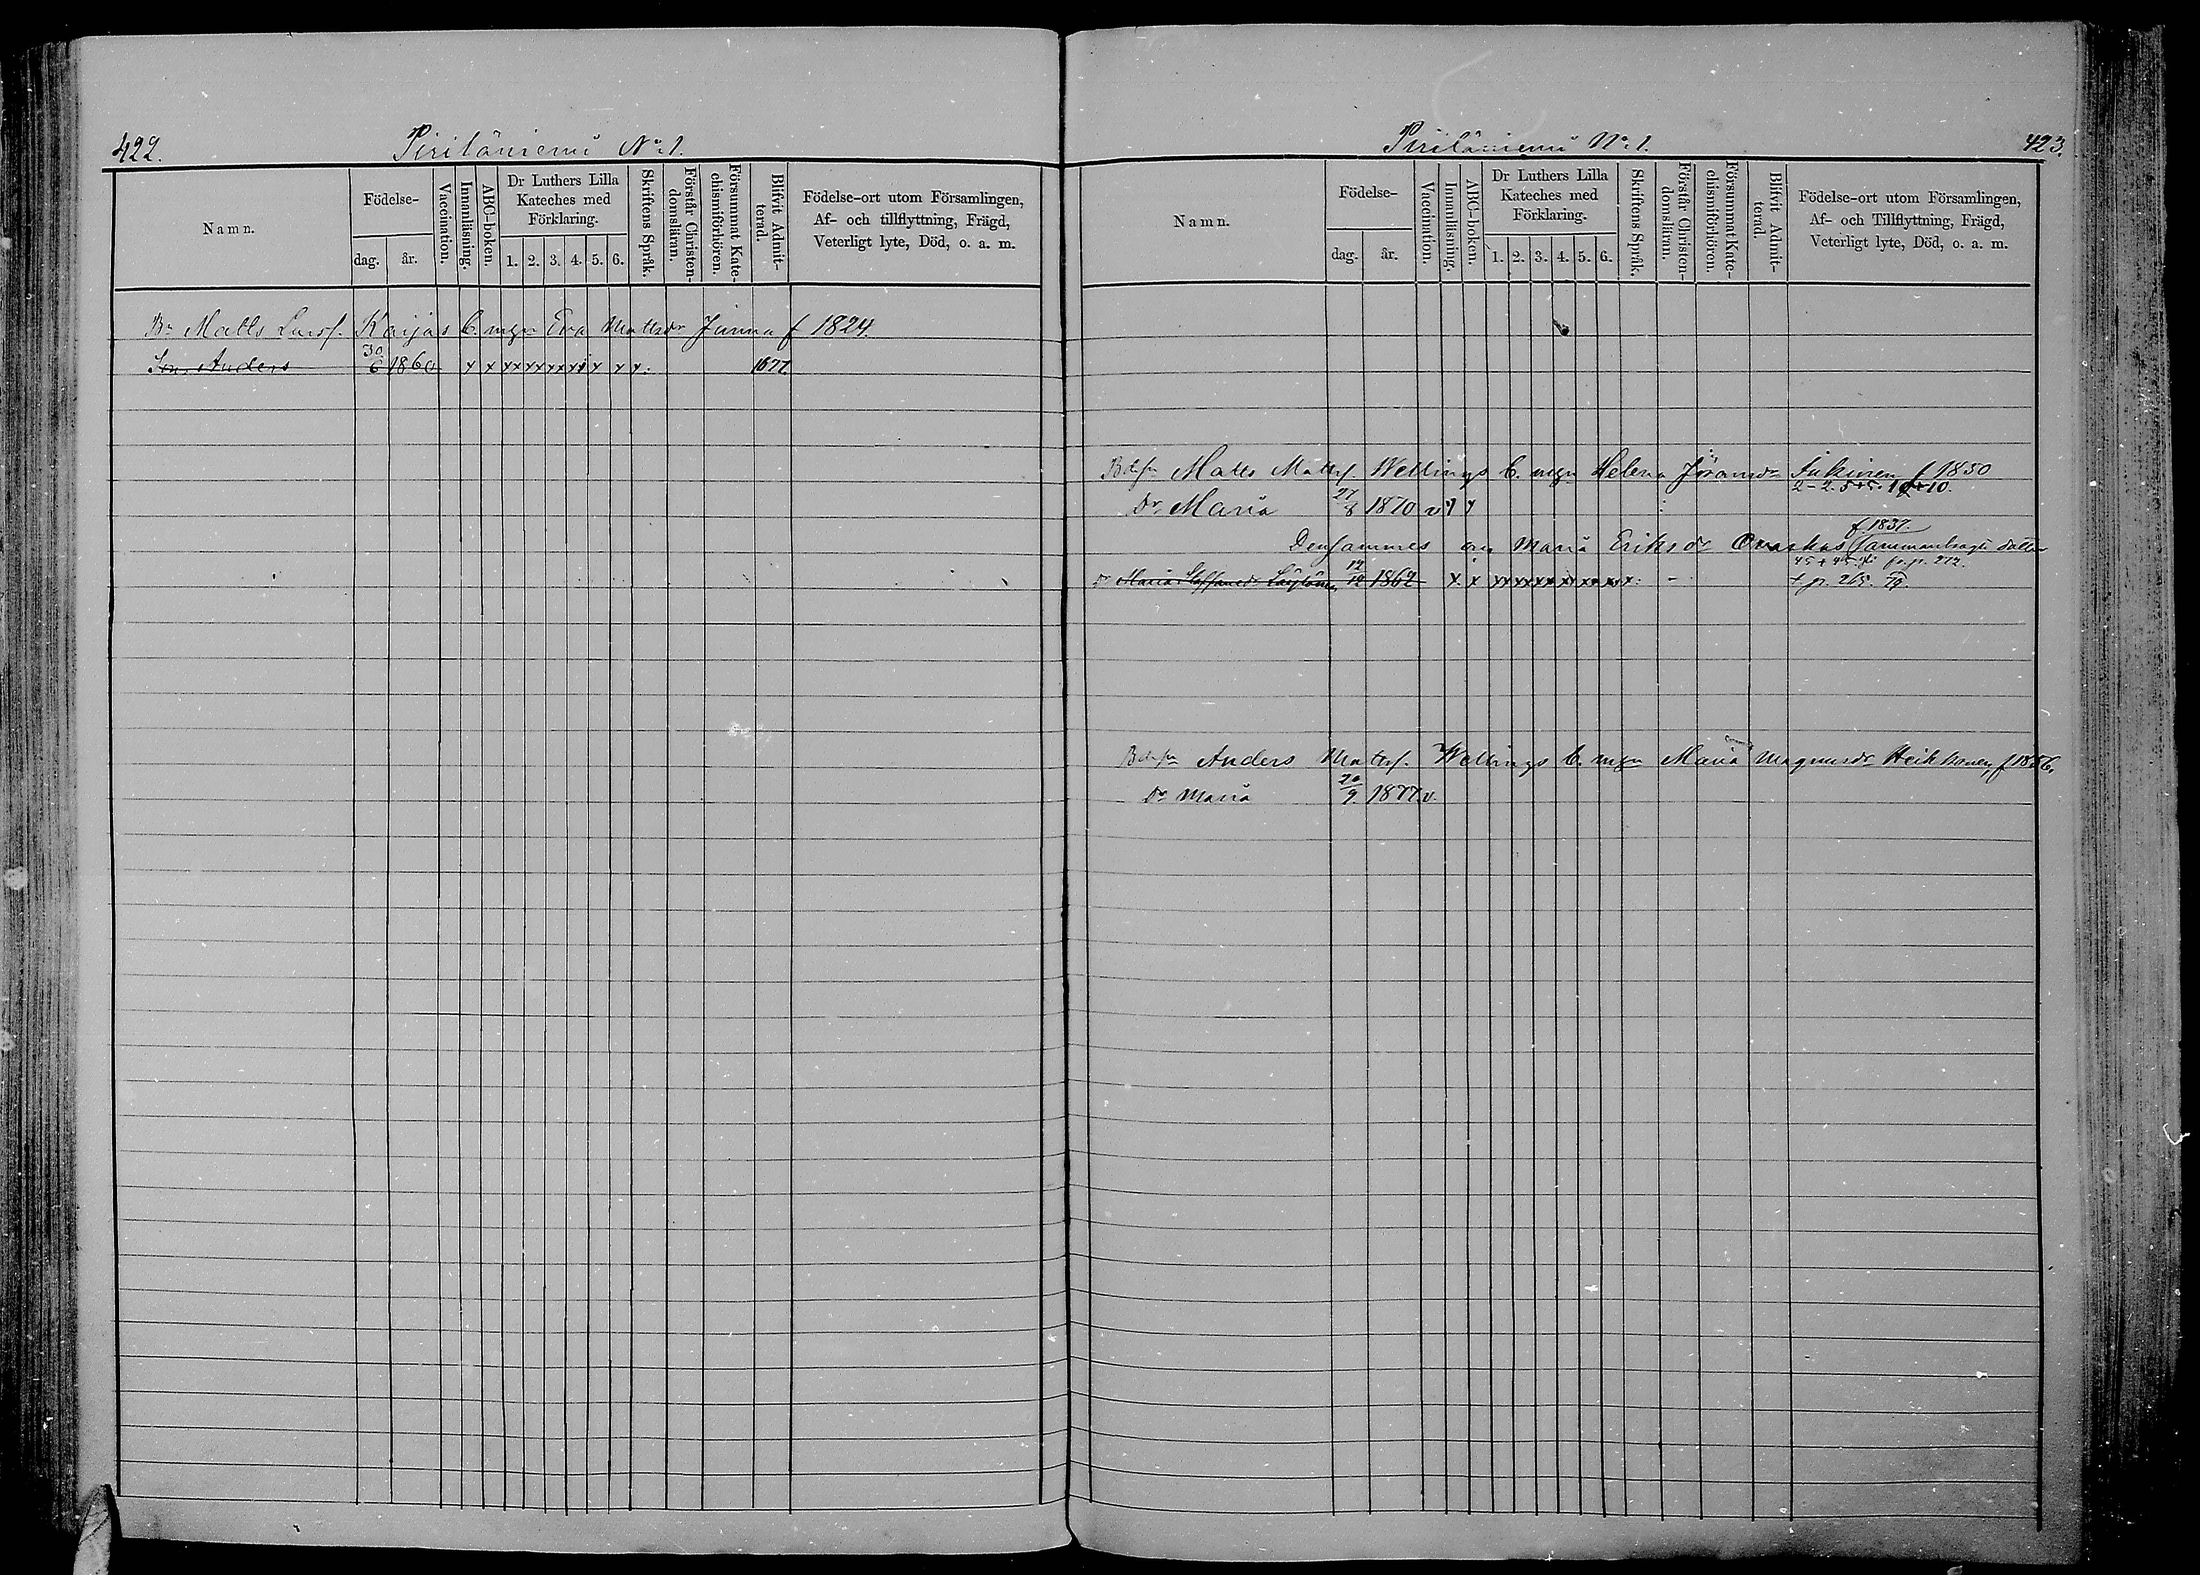 422.
Piriläniemi No 1.
Namn.
Födelse-
dag.
år.
Vaccination.
Innanläsning.
ABC-boken.
Dr Luthers Lilla
Kateches med
Förklaring.
1. 2. 3. 4. 5. 6.
Skriftens Språk.
Förstår Christen-
domsläran.
Försummat Kate-
chismiförhören.
Blifvit Admit-
terad.
Födelse-ort utom Församlingen,
Af- och tillflyttning, Frägd,
Veterligt lyte, Död, o. a. m.
Bn Matts Larsf. Kaijas C. mgn Eva Mattsdr Junna f 1824.
Son Anders 30/6 1860 x x xx xx xx xx x x x. 1877.
Piriläniemi No 1.
423.
Namn.
Födelse-
dag.
år.
Vaccination.
Innanläsning.
ABC-boken.
Dr Luthers Lilla
Kateches med
Förklaring.
1. 2. 3. 4. 5. 6.
Skriftens Språk.
Förstår Christen-
domsläran.
Försummat Kate-
chismiförhören.
Blifvit Admit-
terad.
Födelse-ort utom Församlingen,
Af- och Tillflyttning, Frägd,
Veterligt lyte, Död, o. a. m.
Matts Mattsf. Wellings C. mgn Helena Jöransdr f 1850
Dr Maria 27/8 1870 v
f 1837.
Densammes Maria Eriksdr
Dr Maria Staffansdr 1862 x x
Anders Matsf. Wellings C. mgn Maria Magnusdr Heikkonen, f 1856.
Dr Maria 20/9 1877. v.